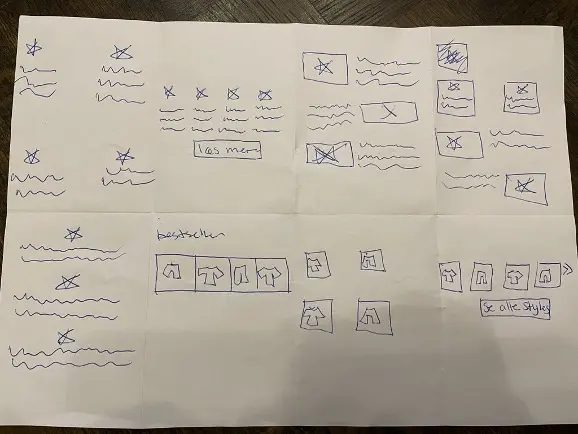 læs mere
bestseller
Se alle styles